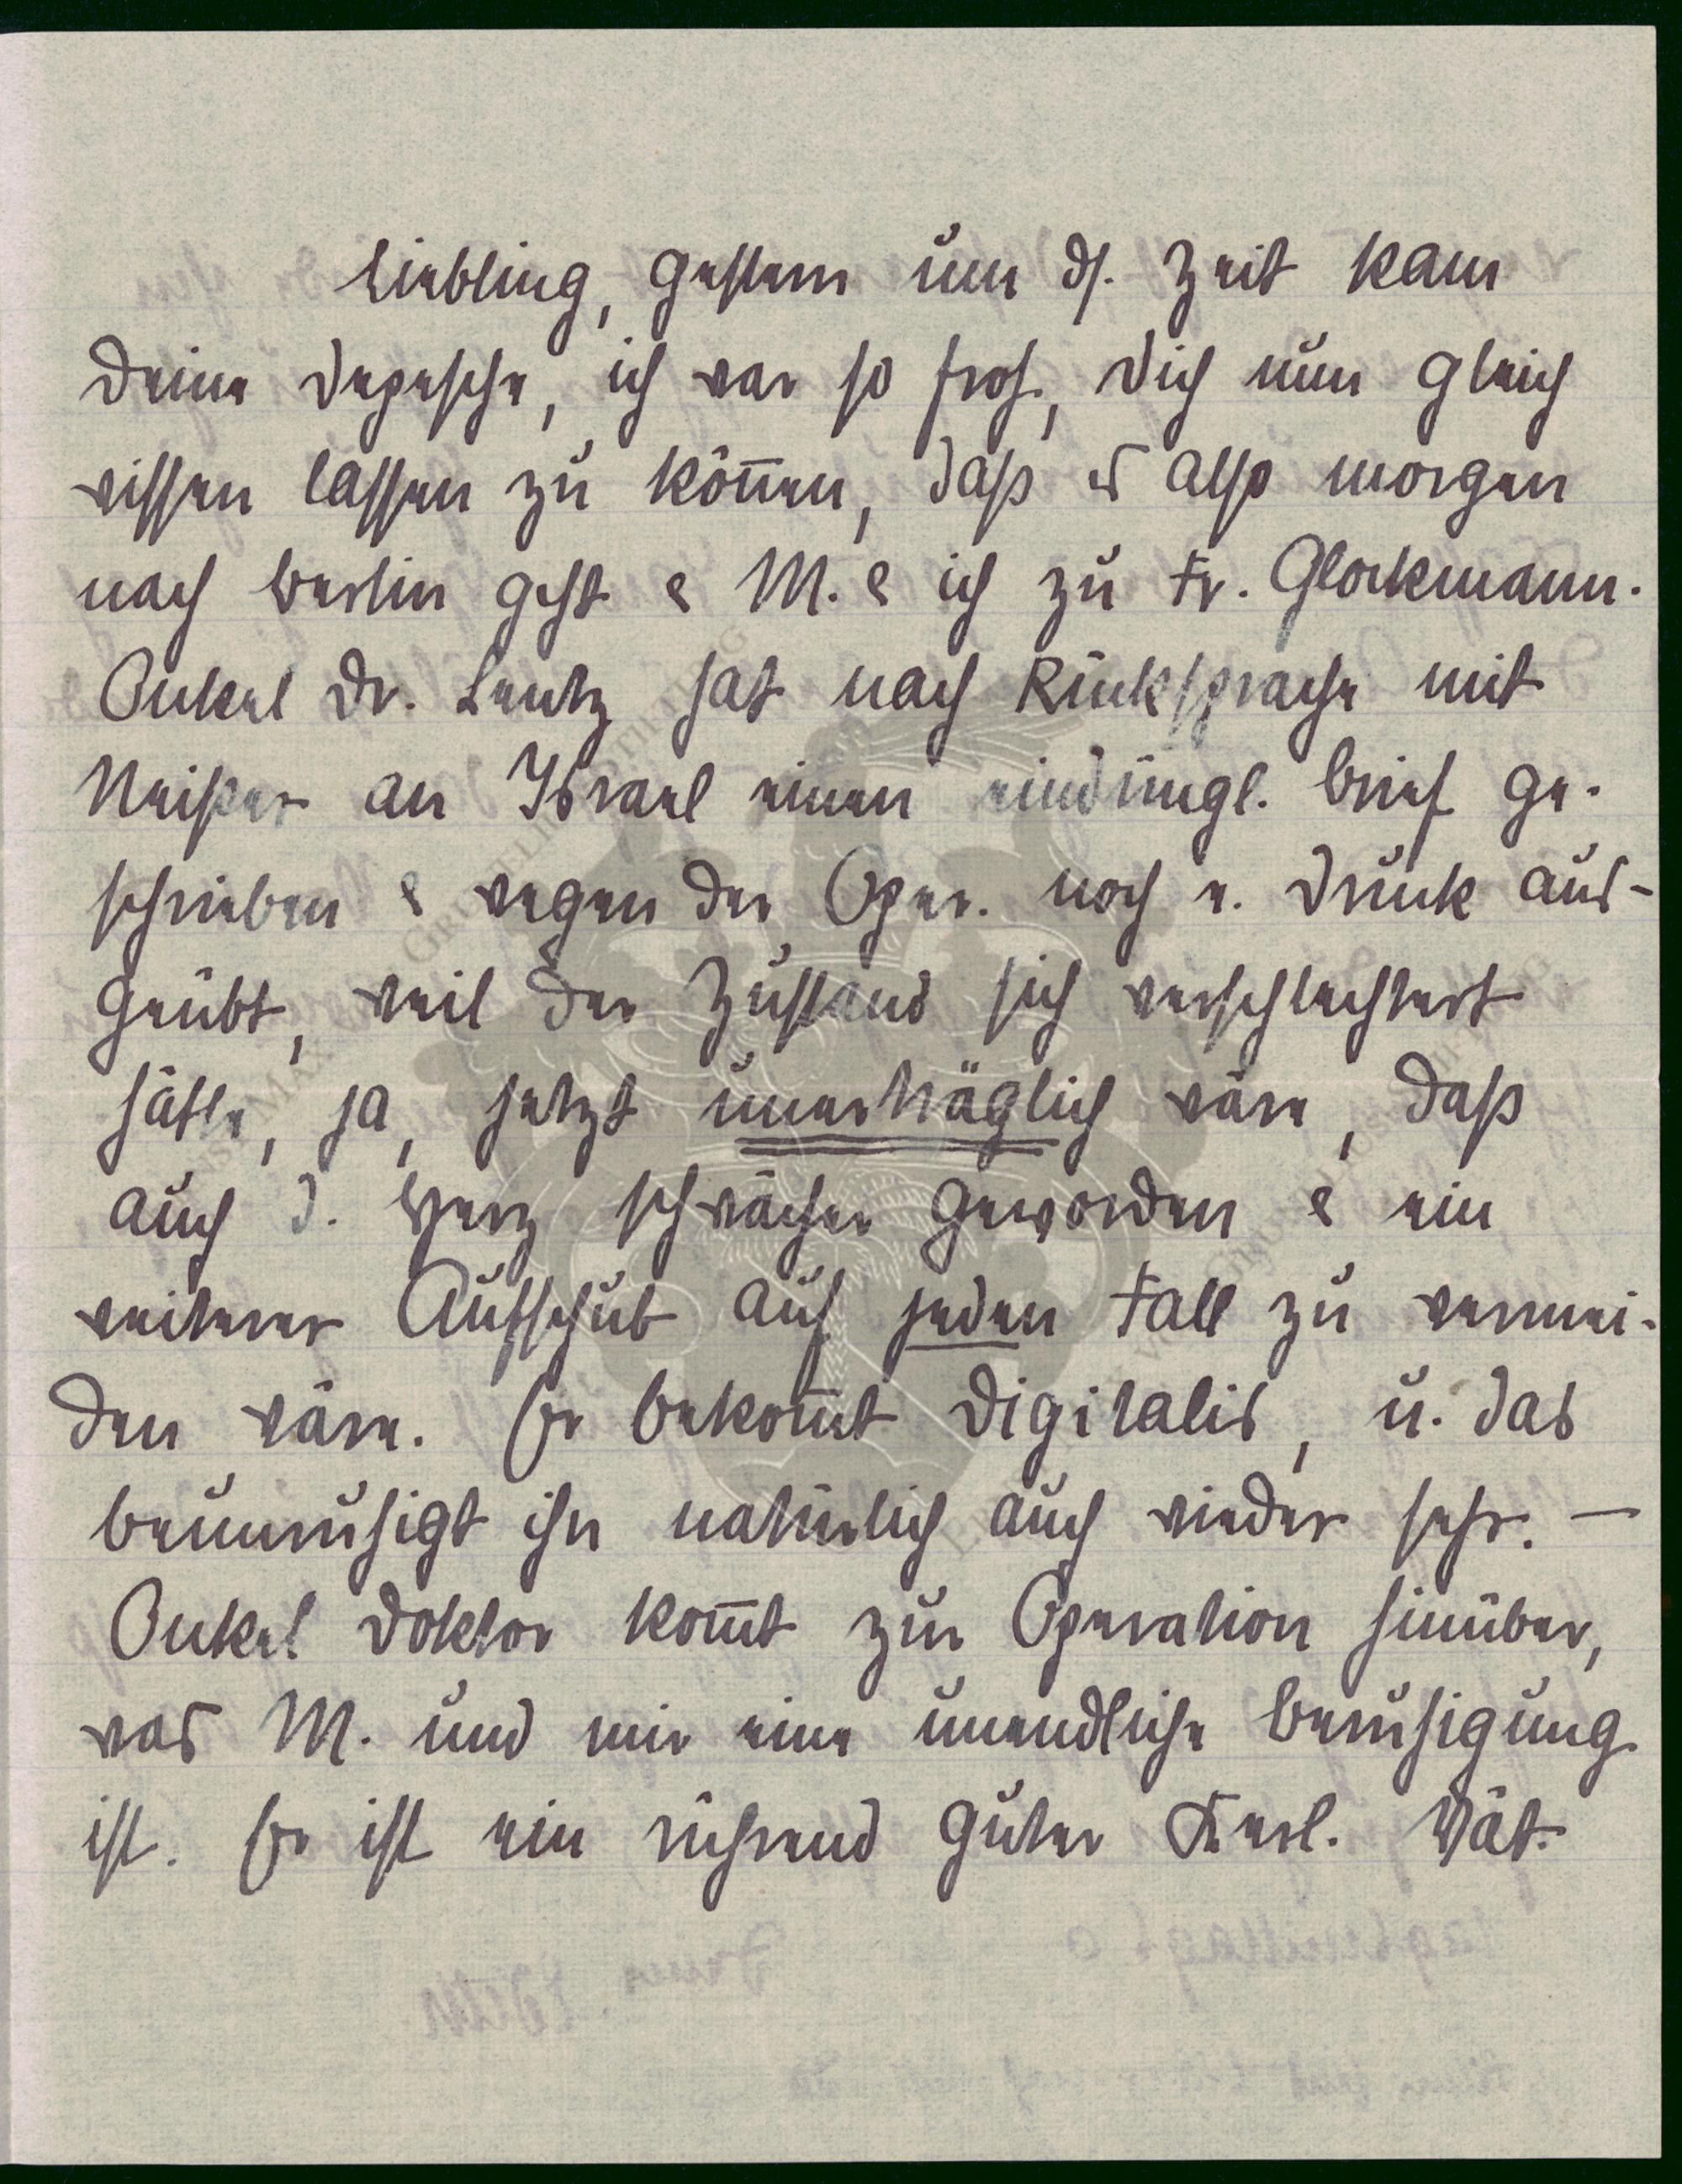 Liebling, gestern um ds. Zeit kam
Deine Depesche, ich war so froh, Dich nun gleich
wissen lassen zu kön̄en, daß es also morgen
nach Berlin geht & M. & ich zu Fr. Glockmann.
Onkel Dr. Lentz hat nach Rücksprache mit
Neißer an Israel einen eindringl. Brief ge-
schrieben & wegen der Oper. noch e. Druck aus-
geübt, weil der Zustand sich verschlechtert
hätte, ja, jetzt unerträglich wäre, daß
auch d. Herz schwächer geworden & ein
weiterer Aufschub auf jeden Fall zu vermei-
den wäre. Er bekom̄t Digitalis, u. das
beunruhigt ihn natürlich auch wieder sehr. —
Onkel Doktor kom̄t zur Operation hinüber,
was M. und mir eine unendliche Beruhigung
ist. Er ist ein rührend guter Kerl. Vät.